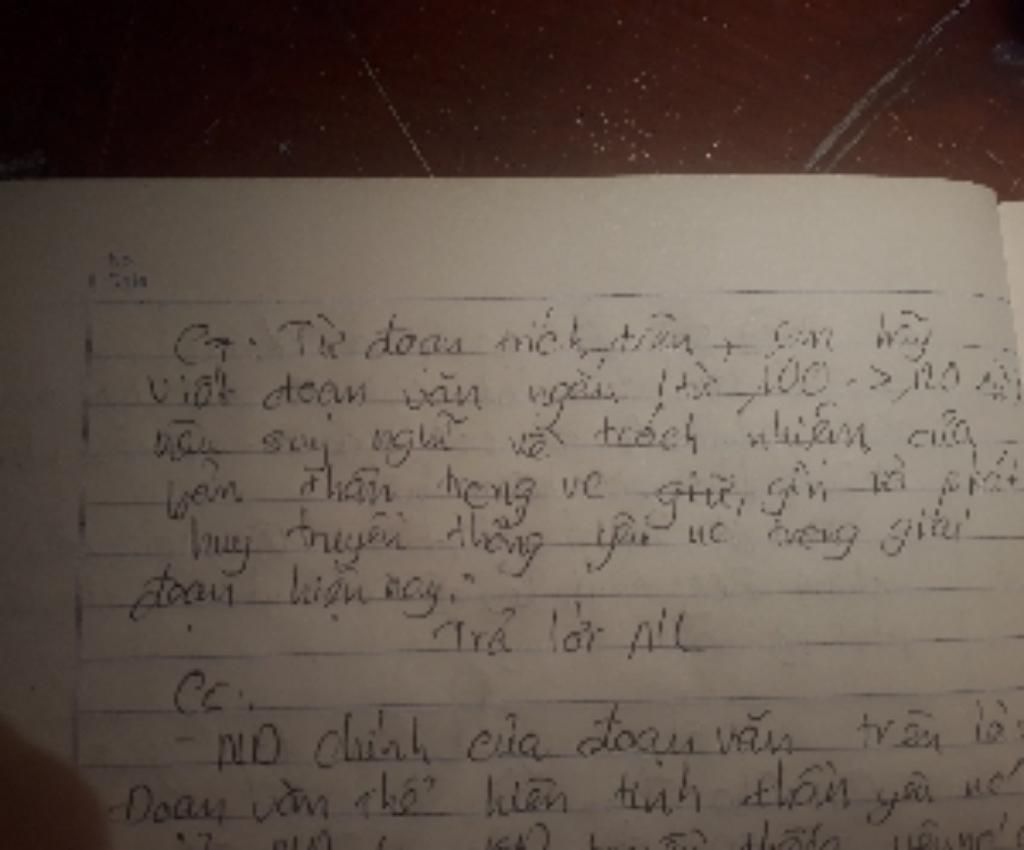 No.
Date
C7: Từ đoạn trích trên, em hãy
viết đoạn văn ngắn (từ 100 -> 120 từ)
nêu suy nghĩ về trách nhiệm của
bản thân trong vc giữ, gìn và phát
huy truyền thống yêu nc trong giai
đoạn hiện nay."
Trả lời
C6:
- ND chính của đoạn văn trên là:
Đoạn văn thể hiện tinh thần yêu nc
truyền thống